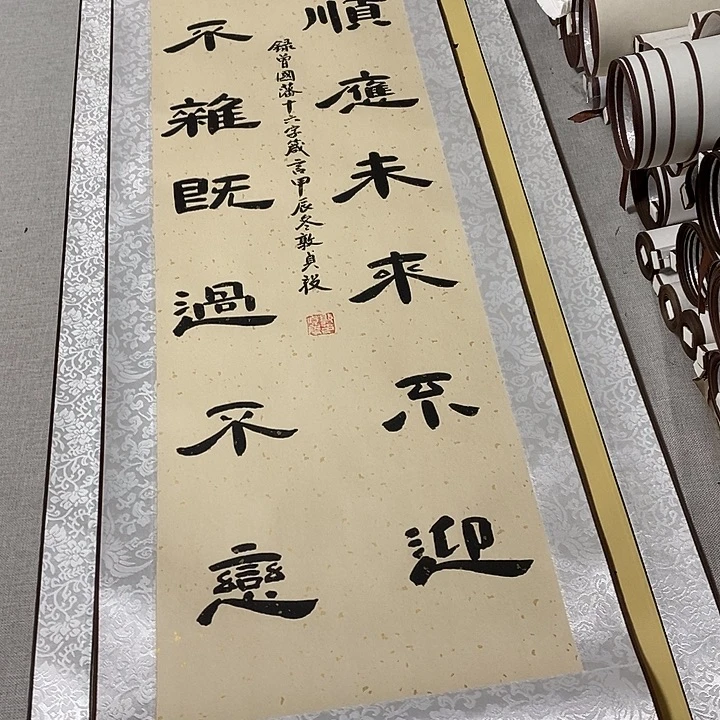 順應未來不迎
不雜既過不戀
録曾國藩十六字箴言甲辰冬敦貞